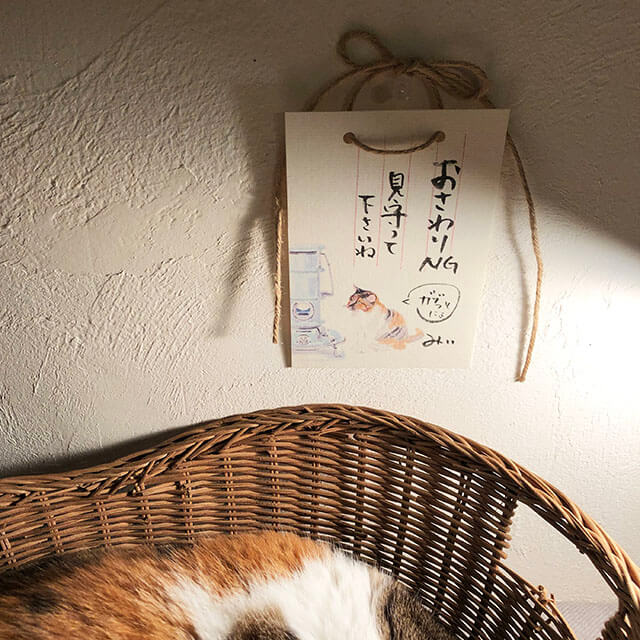 おさわりNG
見守って
下さいね
がぶり
にょ
みぃ